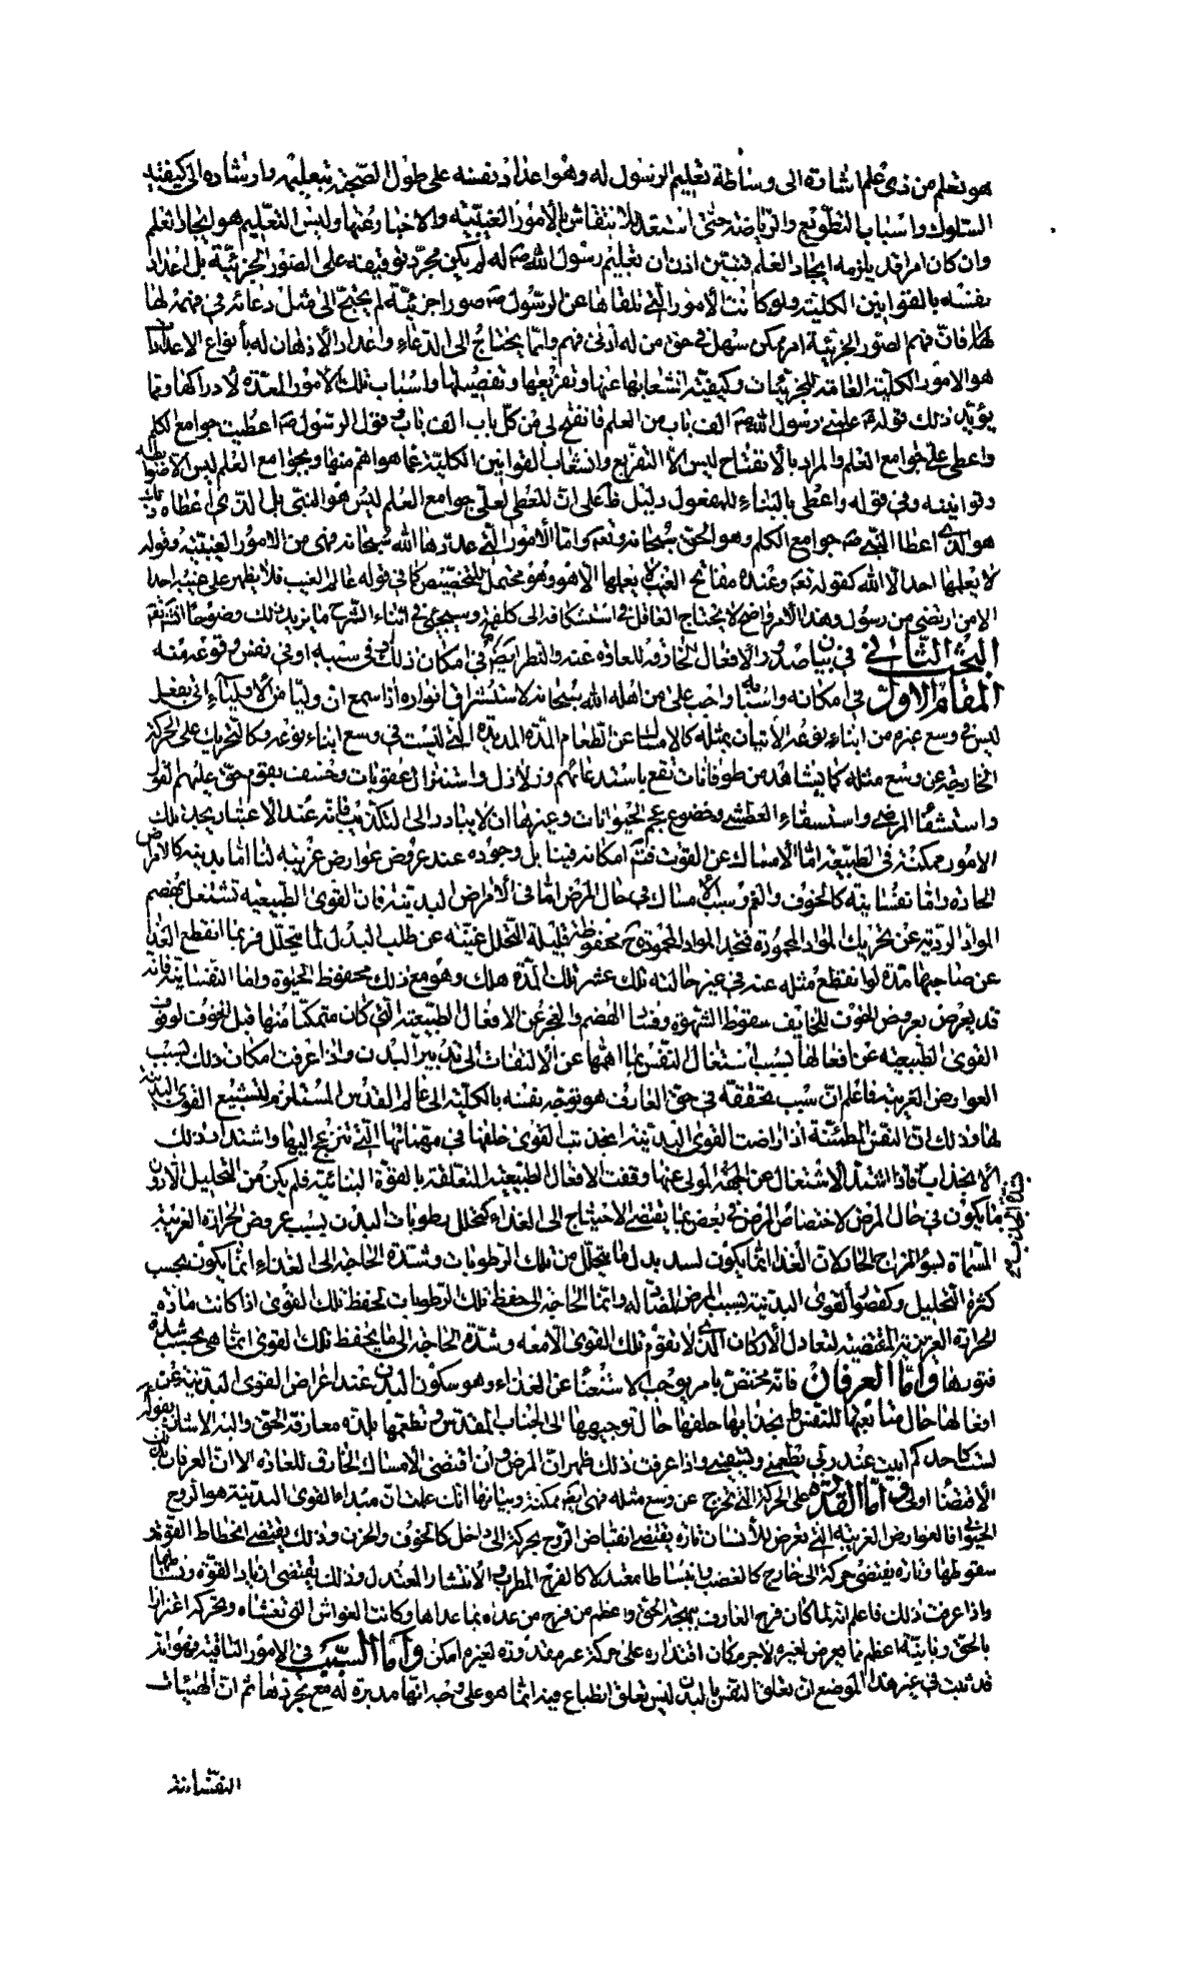 هو تعلم من ذى علم اشارة الى وساطة تعليم الرسول له وهو اعداد نفسه على طول الصحبة بتعليمه وارشاده الى كيفية
السلوك واسباب التطويع والرياضة حتى استعد للانتقاش بالأمور الغيبية والاخبار عنها وليس التعليم هو ايجاد العلم
وان كان امرا قد يلزمه ايجاد العلم فتبين اذن ان تعليم رسول الله صم له لم يكن مجرد توقيفه على الصور الجزئية بل اعداد
نفسه بالقوانين الكلية ولو كانت الأمور التي تلقاها عن الرسول صم صورا جزئية لم يحتج الى مثل دعائه في فهمه لها
فان فهم الصور الجزئية امر ممكن سهل في حق من له ادنى فهم وانما يحتاج الى الدعاء واعداد الأذهان له بأنواع الاعدادات
هو الامور الكلية العامة للجزئيات وكيفية انشعابها عنها وتفريعها وتفصيلها واسباب تلك الامور المعدة لادراكها ومما
يؤيد ذلك قوله علمني رسول الله صم الف باب من العلم فانفتح لى من كل باب الف باب وقول الرسول صم اعطيت جوامع الكلم
واعطى على جوامع العلم والمراد بالانفتاح ليس الا التفريع وانشعاب القوانين الكلية عما هو اهم منها وبجوامع العلم ليس الا ضوابطه
وقوانينه وفي قوله واعطى بالبناء للمفعول دليل على ان المعطى لعلى جوامع العلم ليس هو النبى بل الذى اعطاه ذلك
هو الذى اعطا النبى صم جوامع الكلم وهو الحق سبحانه وتعم واما الأمور التي عددها الله سبحانه فهى من الامور الغيبية وقوله
لا يعلمها احد الا الله كقوله تعم وعنده مفاتح الغيب لا يعلمها الا هو وهو محتمل للتخصيص كما في قوله عالم الغيب فلا يظهر على غيبه احدا
الا من ارتضى من رسول وهذا الامر واضح لا يحتاج العاقل في استكشافه الى كلفة وسيجيئ في اثناء الشرح ما يزيد ذلك وضوحا انشاء الله تعم
البحث الثاني في بيان صدور الافعال الخارقة للعادة عنه والنظر في امكان ذلك وفي سببه او في نفس وقوعه منه
المقام الاول في امكانه واسبابه واجب على من اهله الله سبحانه لاستشراق انواره اذا سمع ان وليا من الأولياء اتى بفعل
ليس في وسع غيره من ابناء نوعه الاتيان بمثله كالامساك عن الطعام المدة المديدة التي ليست في وسع ابناء نوعه وكالتحريك على الحركة
الخارجة عن وسع مثله كما يشاهد من طوفانات تقع باستدعائهم وزلازل واستنزال عقوبات وخسف بقوم حق عليهم القول
واستشفاء المرضى واستسقاء العطشى وخضوع عجم الحيوانات وغيرها ان لا يبادر الى التكذيب فانه عند الاعتبار يجد تلك
الامور ممكنة في الطبيعة اما الامساك عن القوت فتم امكانه فينا بل وجوده عند عروض عوارض غريبة لنا اما بدنية كالامراض
الحادة واما نفسانية كالخوف والغم وسبب الامساك في حال المرض اما في الامراض البدنية فان القوى الطبيعية تشتغل بهضم
المواد الردية عن تحريك المواد المحمودة فتجد المواد المحمودة ح محفوظة قليلة التحلل غنية عن طلب البدل لما يتحلل فربما انقطع الغذا
عن صاحبها مدة لو انقطع مثله عنه في غير حالته تلك عشر تلك المدة هلك وهو مع ذلك محفوظ الحيوة واما النفسانية فانه
قد يعرض بعروض الخوف للخائف سقوط الشهوة وفساد الهضم والعجز عن الافعال الطبيعة التي كان متمكنا منها قبل الخوف لوقوف
القوى الطبيعية عن افعالها بسبب اشتغال النفس بما اهمها عن الالتفات الى تدبير البدن واذا عرفت امكان ذلك بسبب
العوارض الغريبة فاعلم ان سبب تحققه في حق العارف هو توجه نفسه بالكلية الى عالم القدس المستلزم لتشييع القوى البدنية
لها وذلك ان النفس المطمئنة اذا راضت القوى البدنية انجذبت القوى خلفها في مهماتها التي تنزعج اليها واشتداد ذلك
الانجذاب فاذا اشتد الاشتغال عن الجهة المولى عنها وقفت الافعال الطبيعية المتعلقة بالقوة النباتية فلم يكن من التحليل الا دون
ما يكون في حال المرض لاختصاص المرض في بعض بما يقتضى الاحتياج الى الغذاء كتحلل رطوبات البدن بسبب عروض الحرارة الغريبة
المسماة بسوء المزاج الحار لان الغذا انما يكون لسد بدل ما يتحلل من تلك الرطوبات وشدة الحاجة الى الغذاء انما يكون بحسب
كثرة التحليل وكقصور القوى البدنية بسبب المرض المضاد له وانما الحاجة الى حفظ تلك الرطوبات لحفظ تلك القوى اذا كانت مادة
الحرارة الغريزية المقتضية لتعادل الأركان الذى لا تقوم تلك القوى الا معه وشدة الحاجة الى ما يحفظ تلك القوى انما هى بحسب شدة
فتورها واما العرفان فانه مختص بامر يوجب الاستغناء عن الغذاء وهو سكون البدن عند اعراض القوى البدنية عن
افعالها حال متابعتها للنفس وانجذابها خلفها حال توجيهها الى الجناب المقدس وتطعمها بلذة معارفة الحق واليه الاشارة بقوله
لست كاحدكم ابيت عند ربى يطعمني ويسقيني واذا عرفت ذلك ظهر ان المرض وان اقتضى الامساك الخارق للعادة الا ان العرفان بذلك
الاقتضاء اولى واما القدرة على الحركة التي تخرج عن وسع مثله فهى ايضا ممكنة وبيانها انك علمت ان مبداء القوى البدنية هو الروح
الحيوانى فالعوارض الغريبة التي تعرض للأنسان تارة يقتضى انقباض الروح بحركة الى داخل كالخوف والحزن وذلك يقتضى انحطاط القوة
سقوطها وتارة يقتضى حركة الى خارج كالغضب وانبساطا معتدلا كالفرح المطرب والانتشار المعتدل وذلك يقتضى ازدياد القوة ونشاطها
واذا عرفت ذلك فاعلم انه لما كان فرح العارف ببهجة الحق واعظم من فرح من عداه بما عداها وكانت الغواشى التي تغشاه وتحركه اعتزازا
بالحق ربانية اعظم مما يعرض لغيره لا جرم كان اقتداره على حركة غير مقدورة لغيره امكن واما السبب في الامور الباقية فهو انه
قد ثبت في غير هذا الموضع ان تعلق النفس بالبدن ليس تعلق انطباع فيه انما هو على وجه انها مدبرة له مع تجردها ثم ان الهيئات
النفسانية